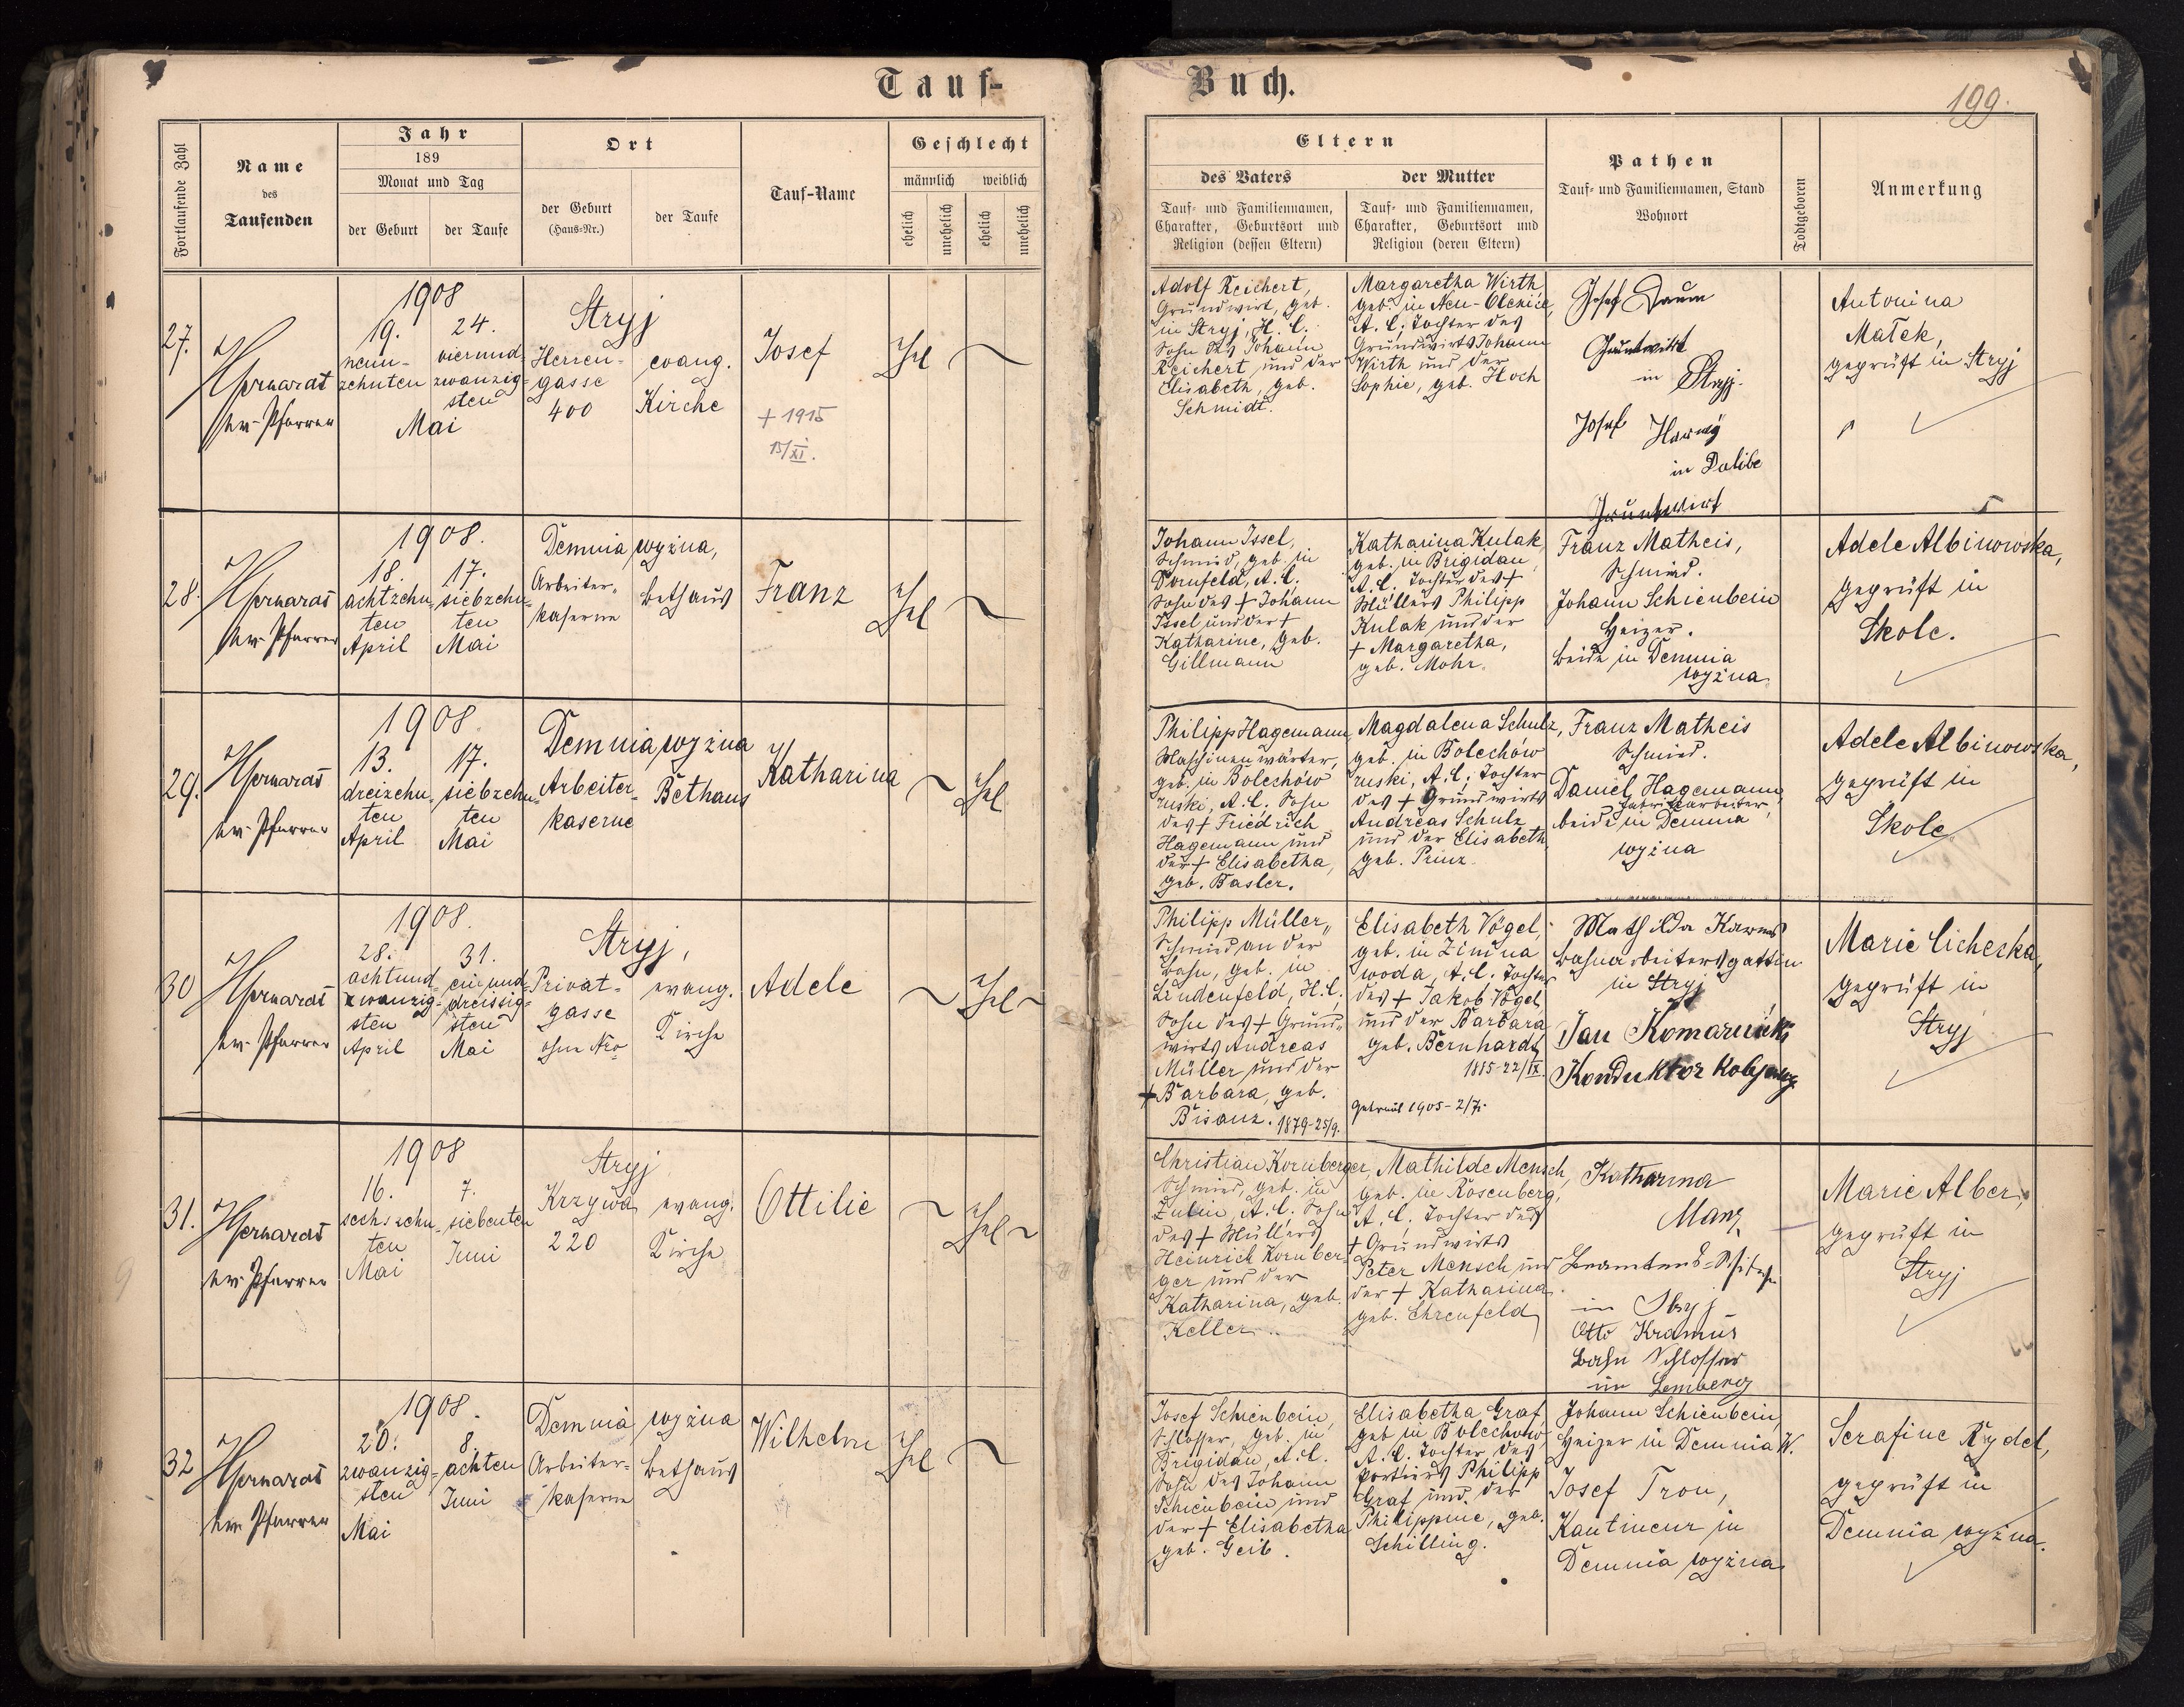 Tauf-
Buch.
199.
Fortlaufende Zahl
Name
des
Taufenden
Jahr
189
Monat und Tag
der Geburt
der Taufe
Ort
der Geburt
(Haus-Nr.)
der Taufe
Tauf-Name
Geschlecht
männlich
weiblich
ehelich
unehelich
ehelich
unehelich
Eltern
des Vaters
Tauf- und Familiennamen,
Charakter, Geburtsort und
Religion (dessen Eltern)
der Mutter
Tauf- und Familiennamen,
Charakter, Geburtsort und
Religion (deren Eltern)
Pathen
Tauf- und Familiennamen, Stand
Wohnort
Todtgeboren
Anmerkung
27.
ev. Pfarrer
1908
19.
neun-
zehnten
24.
vierund-
zwanzig-
sten
Mai
Stryj
Herren-
gasse
400
evang.
Kirche
Josef
+ 1915
15/XI.
Adolf Reichert,
Grundwirt, geb.
in Stryj, H. C.
Sohn des Johann
Reichert und der
Elisabeth, geb.
Schmidt.
Margaretha Wirth
geb. in Neu-Oleksice,
A. C. Tochter des
Grundwirts Johann
Wirth und der
Sophie, geb. Hoch
Josef Daum
Grundwirt
in Stryj.
Josef
in Dolibe
Grundwirt
Antonina
Małek,
geprüft in Stryj
28.
ev. Pfarrer
1908.
18.
achtzehn-
ten
April
17.
siebzehn-
ten
Mai
Demnia wyżna,
Arbeiter-
kaserne
Bethaus
Franz
Johann Issel,
Schmied, geb. in
Dornfeld, A. C.
Sohn des + Johann
Issel und der +
Katharine, geb.
Gillmann
Katharina Kulak,
geb. in Brigidau,
A. C. Tochter des +
Müllers Philipp
Kulak und der
+ Margaretha,
geb. Mohr.
Franz Matheis,
Schmied.
Johann Schienbein
Heizer.
beide in Demnia
wyżna.
Adele Albinowska,
geprüft in
Skole.
29.
ev. Pfarrer
1908.
13.
dreizehn-
ten
April
17.
siebzehn-
ten
Mai
Demnia wyżna
Arbeiter-
kaserne
Bethaus
Katharina
Philipp Hagemann,
Maschinenwärter,
geb. in Bolechów
ruski, A. C. Sohn
des + Friedrich
Hagemann und
der + Elisabetha,
geb. Basler.
Magdalena Schulz,
geb. in Bolechów
ruski, A. C. Tochter
des + Grundwirts
Andreas Schulz
und der Elisabeth,
geb. Prinz.
Franz Matheis
Schmied.
Daniel Hagemann,
Fabriksarbeiter,
beide in Demnia
wyżna
Adele Albinowska,
geprüft in
Skole
30
ev. Pfarrer
1908.
28.
achtund-
zwanzig-
sten
April
31.
einund-
dreissig-
sten
Mai
Stryj,
Privat-
gasse
ohne Nro
evang.
Kirche
Adele
Philipp Müller,
Schmied an der
Bahn, geb. in
Lindenfeld, H. C.
Sohn des + Grund-
wirts Andreas
Müller und der
+ Barbara, geb.
Bisanz. 1879-25/9.
Elisabeth Vögel,
geb. in Zimna
woda, A. C. Tochter
des + Jakob Vögel,
und der Barbara
geb. Bernhardt
1885-22/IX.
Getraut 1905-2/7.
Mathilda
Bahnarbeitersgattin
in Stryj
Jan Komarnicki
Konduktor
Marie Cicheska,
geprüft in
Stryj
31.
ev. Pfarrer
1908
16.
sechszehn-
ten
Mai
7.
siebenten
Juni
Stryj
Krzywa
220
evang.
Kirche
Ottilie
Christian Kornberger,
Schmied, geb. in
Zulin, A. C. Sohn
des + Müllers
Heinrich Kornber-
ger und der
Katharina, geb.
Keller.
Mathilde Mensch,
geb. in Rosenberg,
A. C. Tochter des
+ Grundwirts
Peter Mensch und
der + Katharina,
geb. Ehrenfeld
Katharina
Manz
in Stryj
Otto Kramus
Bahn Schlosser
in Lemberg
Marie Alber,
geprüft in
Stryj
32
ev. Pfarrer
1908.
20.
zwanzig-
sten
Mai
8.
achten
Juni
Demnia wyżna
Arbeiter-
kaserne
Bethaus
Wilhelm
Josef Schienbein,
Schlosser, geb. in
Brigidau, A. C.
Sohn des Johann
Schienbein und
der + Elisabetha
geb. Geib.
Elisabetha Graf,
geb. in Bolechów,
A. C. Tochter des
Portiers Philipp
Graf und der
Philippine, geb.
Schilling.
Johann Schienbein,
Heizer in Demnia W.
Josef Tron,
Kantineur in
Demnia wyżna
Serafine Rydel,
geprüft in
Demnia wyżna.